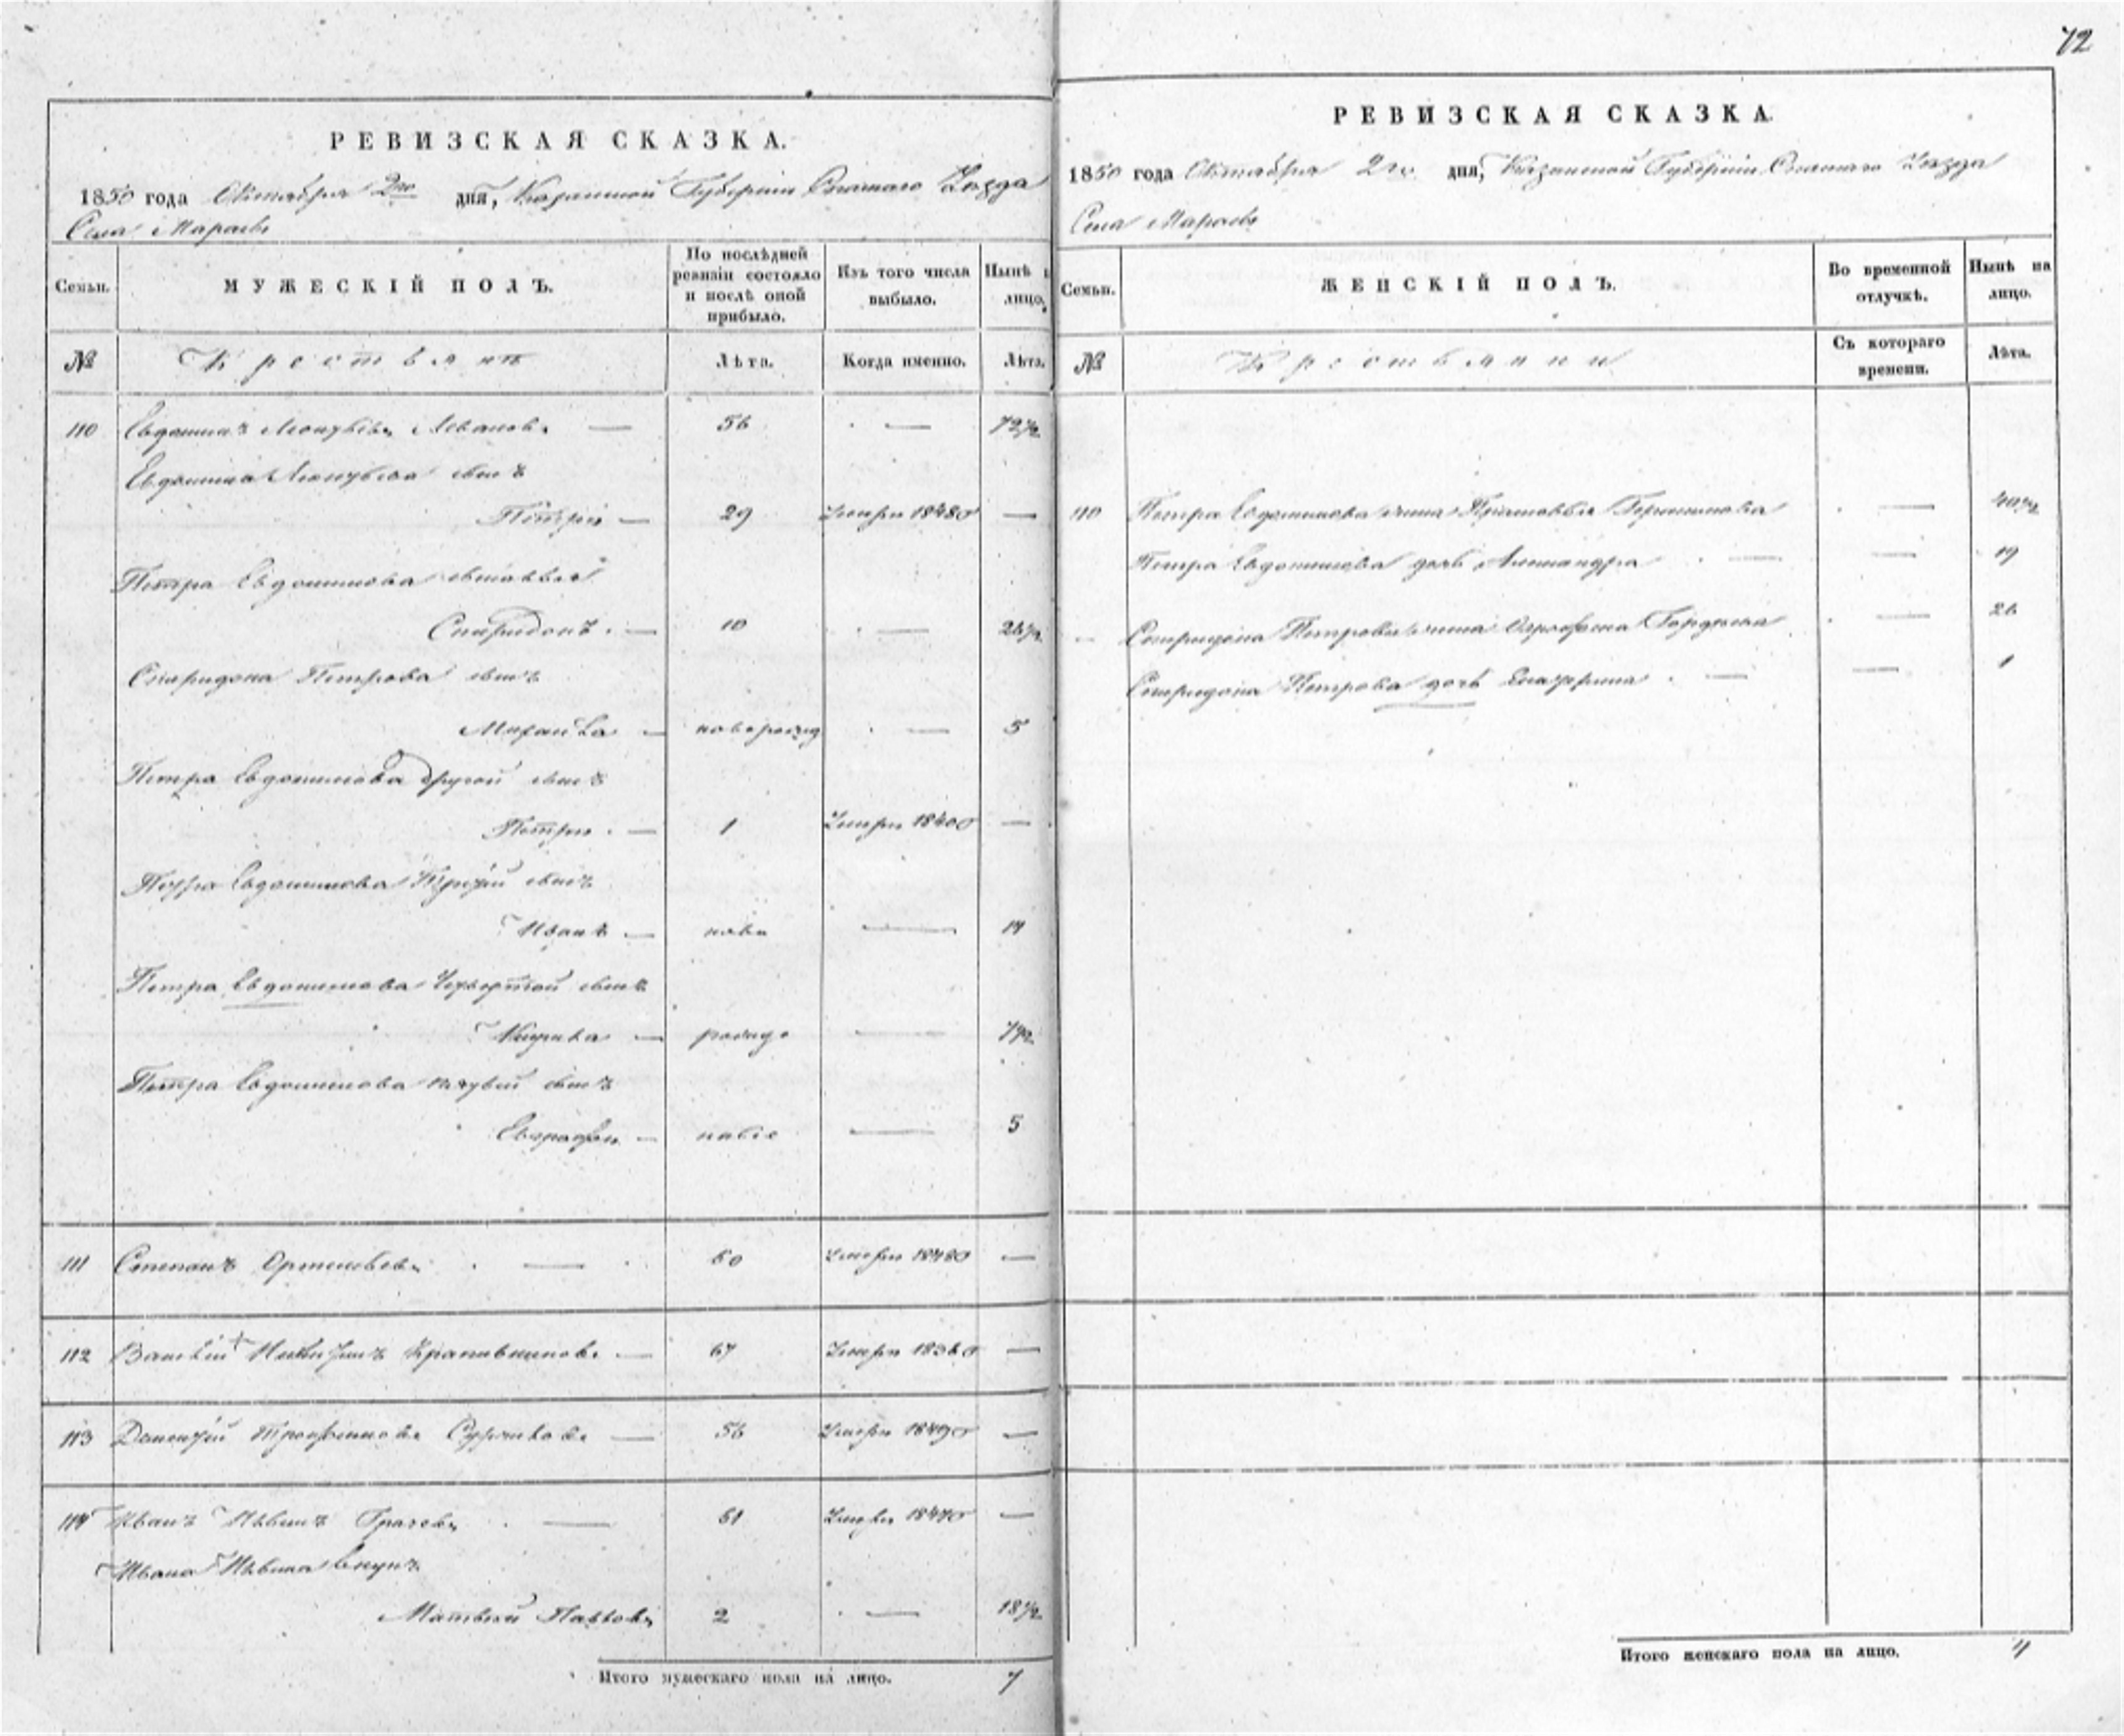 72
РЕВИЗСКАЯ СКАЗКА.
1850 года Октября 2го дня, Казанской Губернии Спаскаго Уезда
Села Мараевъ
Семьи. МУЖЕСКІЙ ПОЛЪ. По послѣдней ревизіи состояло и послѣ оной прибыло. Изъ того числа выбыло. Нынѣ лицо.
№ Крестьянъ Лѣта. Когда именно. Лѣта.
110 Евдокимъ — 56 — 72½
Евдокима сынъ
Петръ — 29 Умеръ 1848 —
Петра Евдокимова сыновья
Спиридонъ — 10 — 26½
Спиридона Петрова сынъ
Михайла — новорожд — 5
Петра Евдокимова другой сынъ
Петръ — 1 Умеръ 1840 —
Петра Евдокимова третій сынъ
Иванъ — новъ — 14
Петра Евдокимова четвертой сынъ
Кирила — рожде — 7½
Петра Евдокимова пятый сынъ
Евграфъ — 5
111 Степанъ — 60 Умеръ 1848 —
112 Василій Никифоровъ Крапивниковъ — 67 Умеръ 1836 —
113 Трофимовъ — 56 Умеръ 1849 —
114 Иванъ Грачевъ — 61 Умеръ 1847 —
Ивана внукъ
Матвей Павловъ 2 — 18½
Итого мужескаго пола на лицо. 7
РЕВИЗСКАЯ СКАЗКА.
1850 года Октября 2го дня, Казанской Губерніи Спаскаго Уезда
Села Мараевъ
Семьи. ЖЕНСКІЙ ПОЛЪ. Во временной отлучкѣ. Нынѣ на лицо.
№ Крестьянки Съ котораго времени. Лѣта.
110 Петра Евдокимова жена Прасковья Герасимова — 40½
Петра Евдокимова дочь Александра — 19
Спиридона Петрова жена Аграфена Гордеева — 26
Спиридона Петрова дочь Екатерина — 1
Итого женскаго пола на лицо. 4